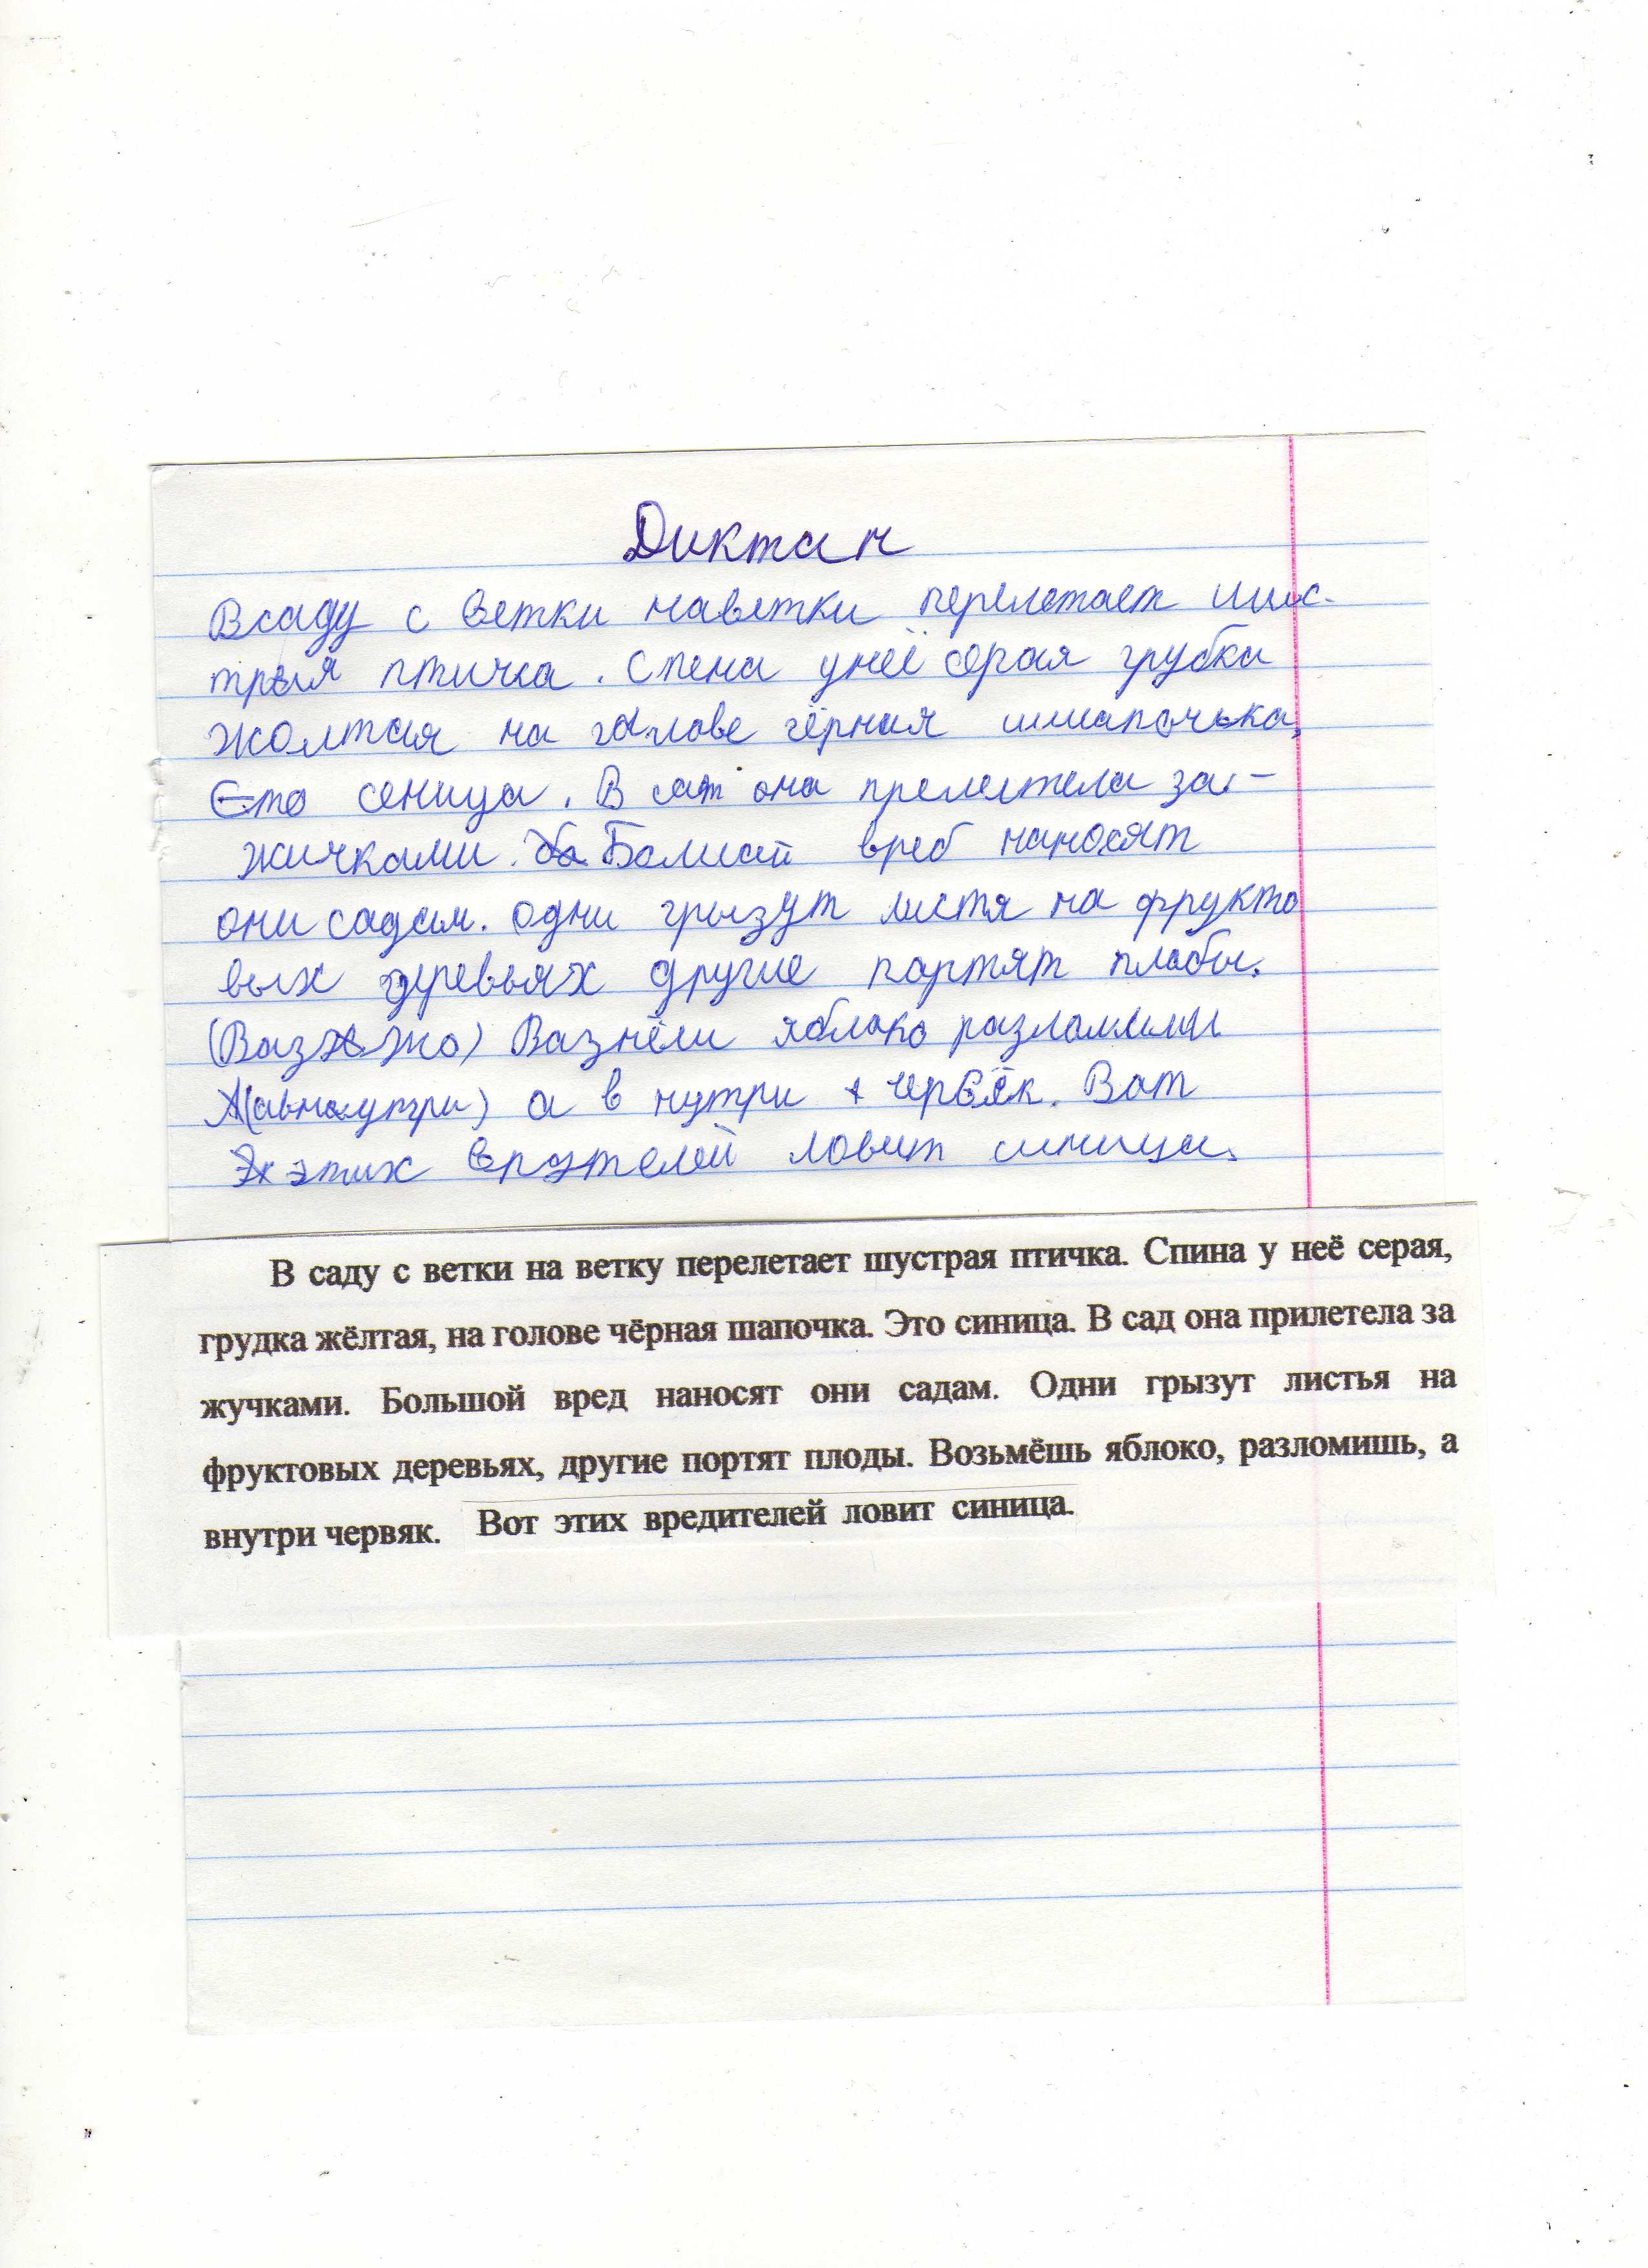 Диктан
Всаду с ветки наветки перелетает шис-
трыя птичка. Спена унеё серая грубка
жолтая на галове чёрная шшапочька,
Ето сеница. В сат она прелетела за-
жичками. Ба Болшай вреб наносят
они садам. одни грызут листя на фрукто
вых деревьях другие портят плабы.
(Вазжжо) Вазмёш яблоко разламиш
А(авнаутри) а в нутри червёк. Вот
Эх этих врэтелей ловит синица.
В саду с ветки на ветку перелетает шустрая птичка. Спина у неё серая,
грудка жёлтая, на голове чёрная шапочка. Это синица. В сад она прилетела за
жучками. Большой вред наносят они садам. Одни грызут листья на
фруктовых деревьях, другие портят плоды. Возьмёшь яблоко, разломишь, а
внутри червяк. Вот этих вредителей ловит синица.